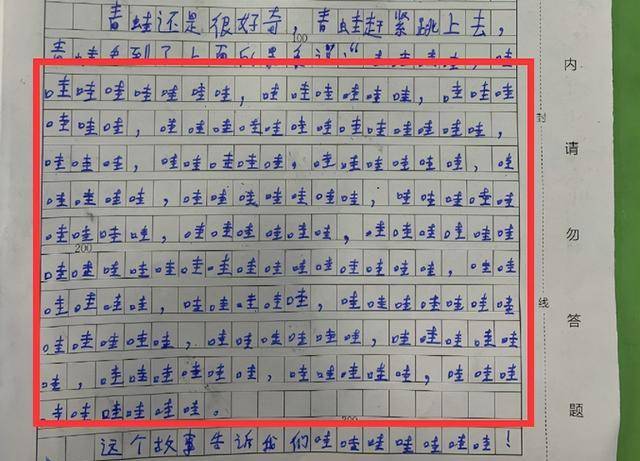 青蛙还是很好奇，青蛙赶紧跳上去，
100
哇哇哇哇哇哇哇，哇哇哇哇哇哇，哇哇哇
哇哇哇哇，哇哇哇哇哇哇哇哇哇哇哇哇哇，
哇哇哇哇，哇哇哇哇哇，哇哇哇哇哇哇，哇
哇哇哇哇，哇哇哇哇哇哇哇，哇哇哇哇哇
哇哇哇哇，哇哇哇哇哇哇，哇哇哇哇哇哇
200
哇哇哇哇哇哇哇哇哇哇哇哇哇哇哇哇，哇哇
哇哇哇哇哇，哇哇哇哇哇，哇哇哇哇哇哇哇
哇哇哇哇哇哇，哇哇哇哇哇哇，哇哇哇哇哇
哇，哇哇哇哇哇哇，哇哇哇哇哇，哇哇哇
哇哇哇哇哇哇。
300
这个故事告诉我们哇哇哇哇哇哇哇！
封
线
内
请
勿
答
题